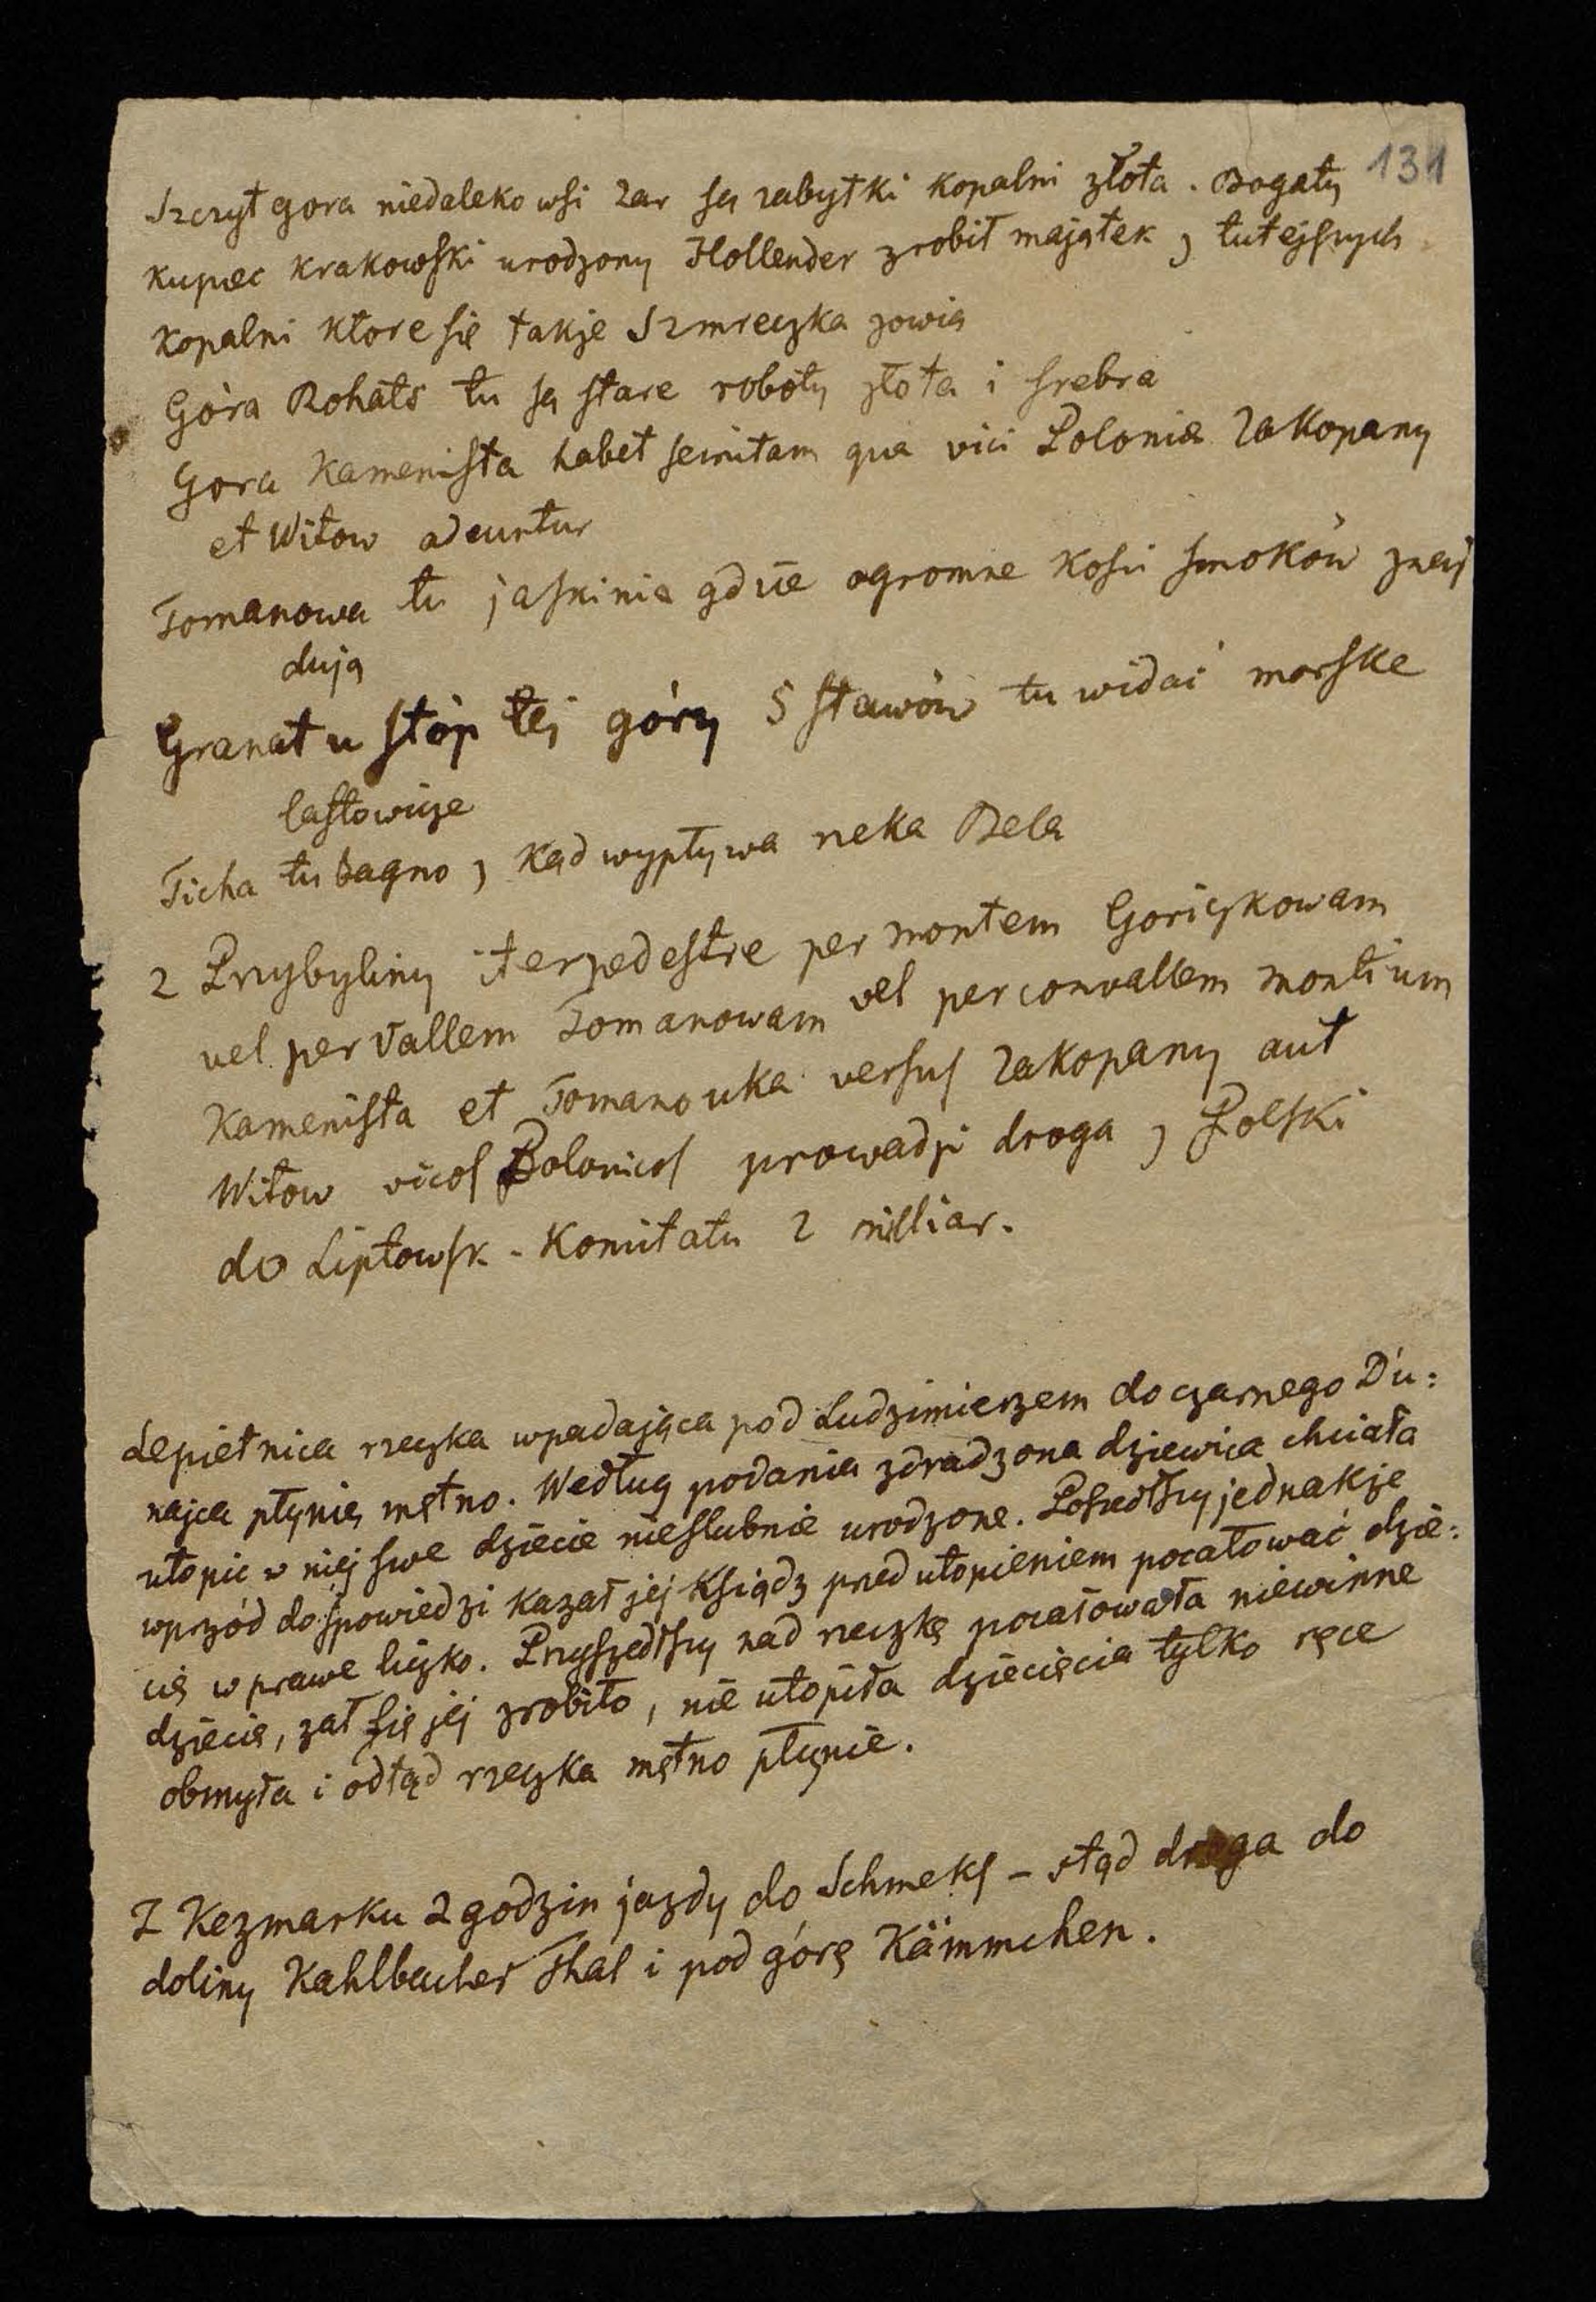 131
Szczyt gora niedaleko wsi Zar są zabytki kopalni złota. Bogaty
kupiec krakowski urodzony Hollender zrobił majątek z tutejszych
kopalni ktore się także Szmreczka zowią
Góra Rohats tu są stare roboty złota i srebra
Gora Kamenista habet semitam qua vici Poloniæ Zakopany
et Witow adeuntur
Tomanowa tu jaskinia gdzie ogromne kosci smoków znaj
dują
Granat u stóp tej góry 5 stawów tu widać morske
lastowicze
Ticha tu bagno z kąd wypływa rzeka Bela
Z Przybyliny iter pedestre per montem Goriczkowam
vel per Vallem Tomanowam vel per convallem montium
Kamenista et Tomanowka versus Zakopany aut
Witow vicos Polonicos prowadzi droga z Polski
do Liptowsk. Komitatu 2 milliar.
Lepietnica rzeczka wpadająca pod Ludzimierzem do czarnego Du:
najca płynie mętno. Według podania zdradzona dziewica chciała
utopic w niej swe dziecie nieslubnie urodzone. Poszedłszy jednakże
wprzód do spowiedzi kazał jej Ksiądz przed utopieniem pocałować dzie:
cię w prawe liczko. Przyszedłszy nad rzeczkę pocałowała niewinne
dziecie, zal się jej zrobiło, nie utopiła dziecięcia tylko ręce
obmyła i odtąd rzeczka mętno płynie.
Z Kezmarku 2 godzin jazdy do Schmeks – stąd droga do
doliny Kahlbacher Thal i pod górę Kämmchen.